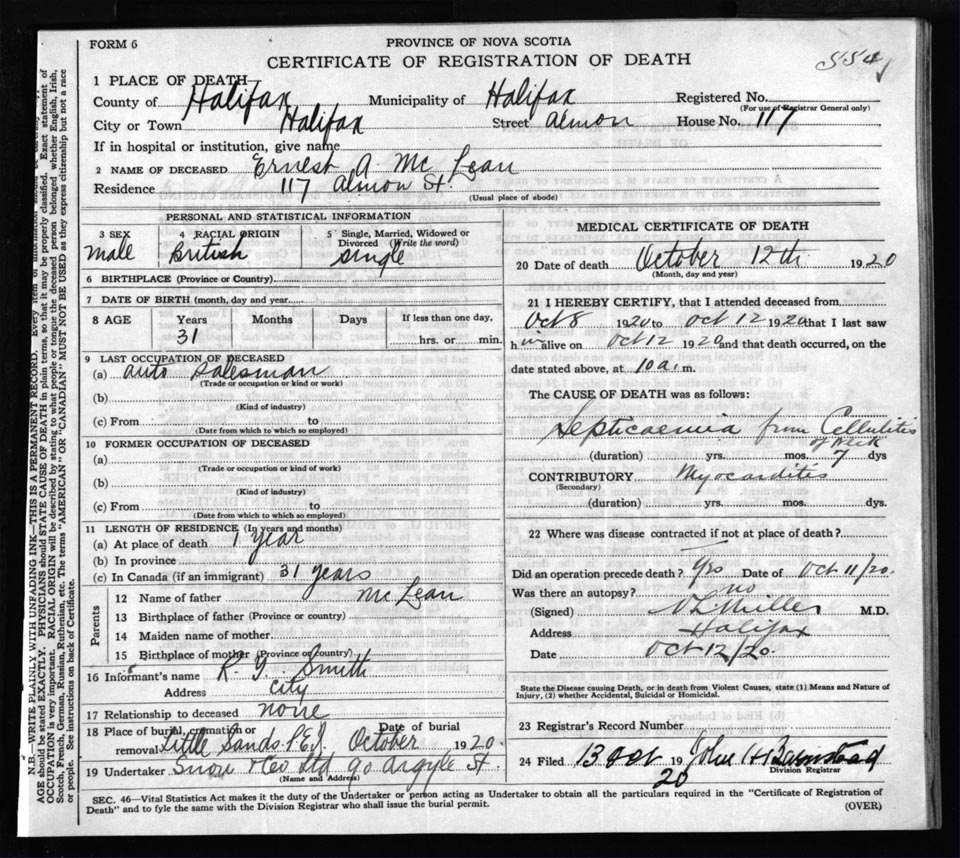 FORM 6
PROVINCE OF NOVA SCOTIA
CERTIFICATE OF REGISTRATION OF DEATH
1 PLACE OF DEATH
County of Halifax Municipality of Halifax Registered No.
(For use of Registrar General only)
City or Town Halifax Street Almon House No. 117
If in hospital or institution, give name
2 NAME OF DECEASED Ernest A Mc Lean
Residence 117 Almon St.
(Usual place of abode)
PERSONAL AND STATISTICAL INFORMATION
3 SEX 4 RACIAL ORIGIN 5 Single, Married, Widowed or Divorced (Write the word)
male British single
6 BIRTHPLACE (Province or Country)
7 DATE OF BIRTH (month, day and year)
8 AGE Years Months Days If less than one day,
31 hrs. or min.
9 LAST OCCUPATION OF DECEASED
(a) auto salesman
(Trade or occupation or kind or work)
(b)
(Kind of industry)
(c) From to
(Date from which to which so employed)
10 FORMER OCCUPATION OF DECEASED
(a)
(Trade or occupation or kind of work)
(b)
(Kind of industry)
(c) From to
(Date from which to which so employed)
11 LENGTH OF RESIDENCE (In years and months)
(a) At place of death 1 year
(b) In province
(c) In Canada (if an immigrant) 31 years
Parents
12 Name of father Mc Lean
13 Birthplace of father (Province or country)
14 Maiden name of mother
15 Birthplace of mother (Province or country)
16 Informant's name R. J. Smith
Address City
17 Relationship to deceased none
18 Place of burial, cremation or removal Little Sands P.E.I. Date of burial October 1920.
19 Undertaker Snow & Co Ltd 90 Argyle St.
(Name and Address)
MEDICAL CERTIFICATE OF DEATH
20 Date of death October 12th 1920
(Month, day and year)
21 I HEREBY CERTIFY, that I attended deceased from
Oct 8 1920 to Oct 12 1920 that I last saw
him alive on Oct 12 1920 and that death occurred, on the
date stated above, at 10 a. m.
The CAUSE OF DEATH was as follows:
Septicaemia from Cellulitis
of neck
(duration) yrs. mos. 7 dys
CONTRIBUTORY Myocarditis
(Secondary)
(duration) yrs. mos. dys.
22 Where was disease contracted if not at place of death?
Did an operation precede death? Yes Date of Oct 11/20.
Was there an autopsy? no
(Signed) Miller M.D.
Address Halifax
Date Oct 12/20.
State the Disease causing Death, or in death from Violent Causes, state (1) Means and Nature of
Injury, (2) whether Accidental, Suicidal or Homicidal.
23 Registrar's Record Number
24 Filed 13 Oct 1920 John H Barnstead
Division Registrar
SEC. 46—Vital Statistics Act makes it the duty of the Undertaker or person acting as Undertaker to obtain all the particulars required in the "Certificate of Registration of
Death" and to fyle the same with the Division Registrar who shall issue the burial permit.
(OVER)
N.B.—WRITE PLAINLY WITH UNFADING INK—THIS IS A PERMANENT RECORD. Every item of information should be
AGE should be stated EXACTLY. PHYSICIANS should STATE CAUSE OF DEATH in plain terms, so that it may be properly classified. Exact statement of
OCCUPATION is very important. RACIAL ORIGIN will be described by stating to what people or tongue the deceased person belonged, whether English, Irish,
Scotch, French, German, Russian, Ruthenian, etc. The terms "AMERICAN" OR "CANADIAN" MUST NOT BE USED as they express citizenship but not a race
or people. See instructions on back of Certificate.